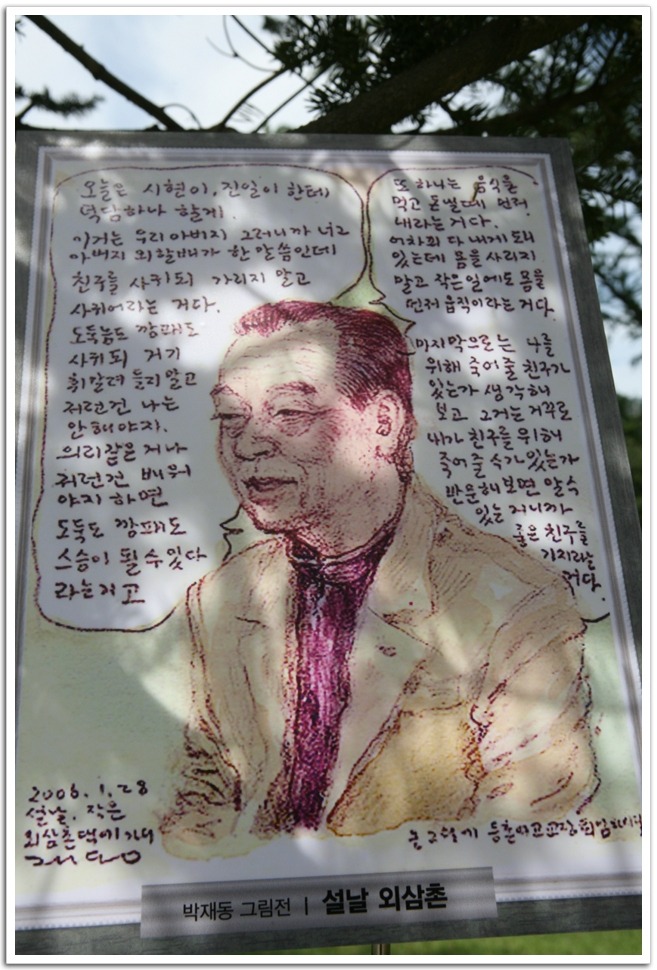 오늘은 시현이, 진일이 한테
덕담하나 할게.
이거는 우리아버지 그러니까 너그
아버지 외할배가 한 말씀인데
친구를 사귀되 가리지 말고
사귀어라는 거다.
도둑놈도 깡패도
사귀되 거기
휘말려 들지말고
저런건 나는
안해야지.
의리같은 거나
저런건 배워
야지 하면
도둑도 깡패도
스승이 될수있다
라는거고
또 하나는 음식을
먹고 돈낼데 먼저
내라는 거다.
어차피 다 내게 되
있는데 몸을 사리지
말고 작은일에도 몸을
먼저 움직이라는 거다.
마지막으로는 나를
위해 죽어줄 친구가
있는가 생각해
보고 그거는 거꾸로
내가 친구를 위해
죽어줄 수가 있는가
반문해보면 알수
있는 거니까
좋은 친구를
가지라는
거다.
2006.1.28
설날. 작은
외삼촌댁에 가서
재동
등촌
박재동 그림전 | 설날 외삼촌